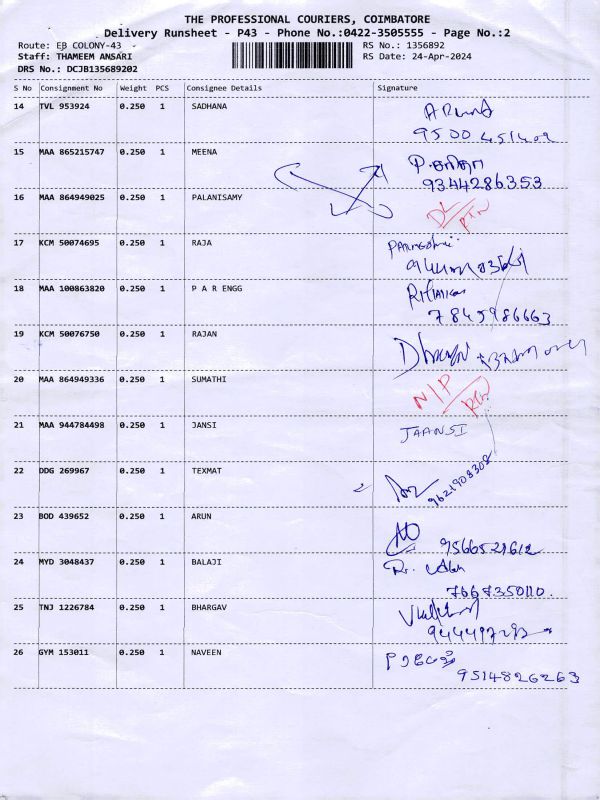 THE PROFESSIONAL COURIERS, COIMBATORE
Delivery Runsheet - P43 - Phone No.:0422-3505555 - Page No.:2
Route: EB COLONY-43 RS No.: 1356892
Staff: THAMEEM ANSARI RS Date: 24-Apr-2024
DRS No.: DCJB135689202
S No Consignment No Weight PCS Consignee Details Signature
14 TVL 953924 0.250 1 SADHANA
15 MAA 865215747 0.250 1 MEENA
9344286353
16 MAA 864949025 0.250 1 PALANISAMY
DL/RTN
17 KCM 50074695 0.250 1 RAJA
18 MAA 100863820 0.250 1 P A R ENGG
7845986663
19 KCM 50076750 0.250 1 RAJAN
20 MAA 864949336 0.250 1 SUMATHI
N/P RTN
21 MAA 944784498 0.250 1 JANSI JAANSI
22 DDG 269967 0.250 1 TEXMAT
9621908308
23 BOD 439652 0.250 1 ARUN
9566521612
24 MYD 3048437 0.250 1 BALAJI
7667350110.
25 TNJ 1226784 0.250 1 BHARGAV
26 GYM 153011 0.250 1 NAVEEN
9514826263